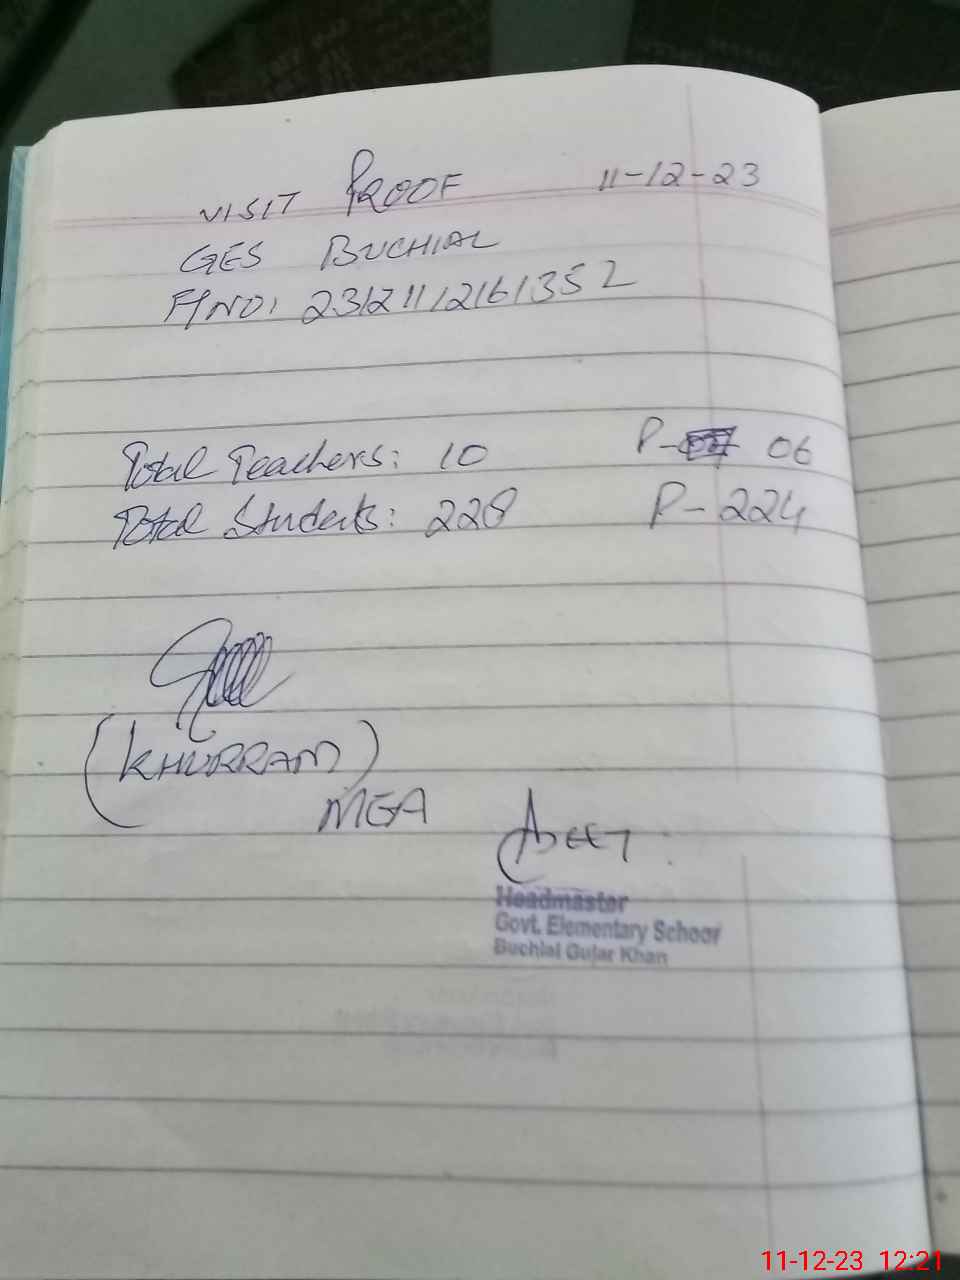 VISIT PROOF 11-12-23
GES BUCHIAL
F/NO: 23121112161352
Total Teachers: 10 P- 06
Total Students: 228 P-224
(KHURRAM)
MEA
Headmaster
Govt. Elementary School
Buchial Gujar Khan
11-12-23 12:21